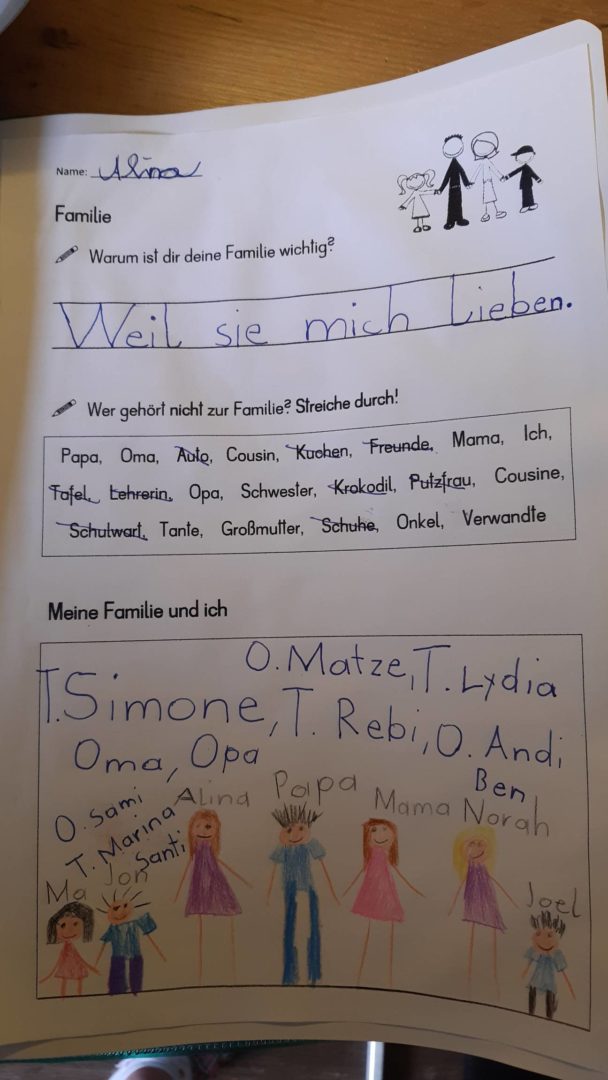 Name: Alina
Familie
Warum ist dir deine Familie wichtig?
Weil sie mich Lieben.
Wer gehört nicht zur Familie? Streiche durch!
Papa, Oma, Auto, Cousin, Kuchen, Freunde, Mama, Ich,
Tafel, Lehrerin, Opa, Schwester, Krokodil, Putzfrau, Cousine,
Schulwart, Tante, Großmutter, Schuhe, Onkel, Verwandte
Meine Familie und ich
O. Matze, T. Lydia
T. Simone, T. Rebi, O. Andi
Oma, Opa
Ben
O. Sami
T. Marina
Santi
Alina Papa Mama Norah
Ma Jon Joel